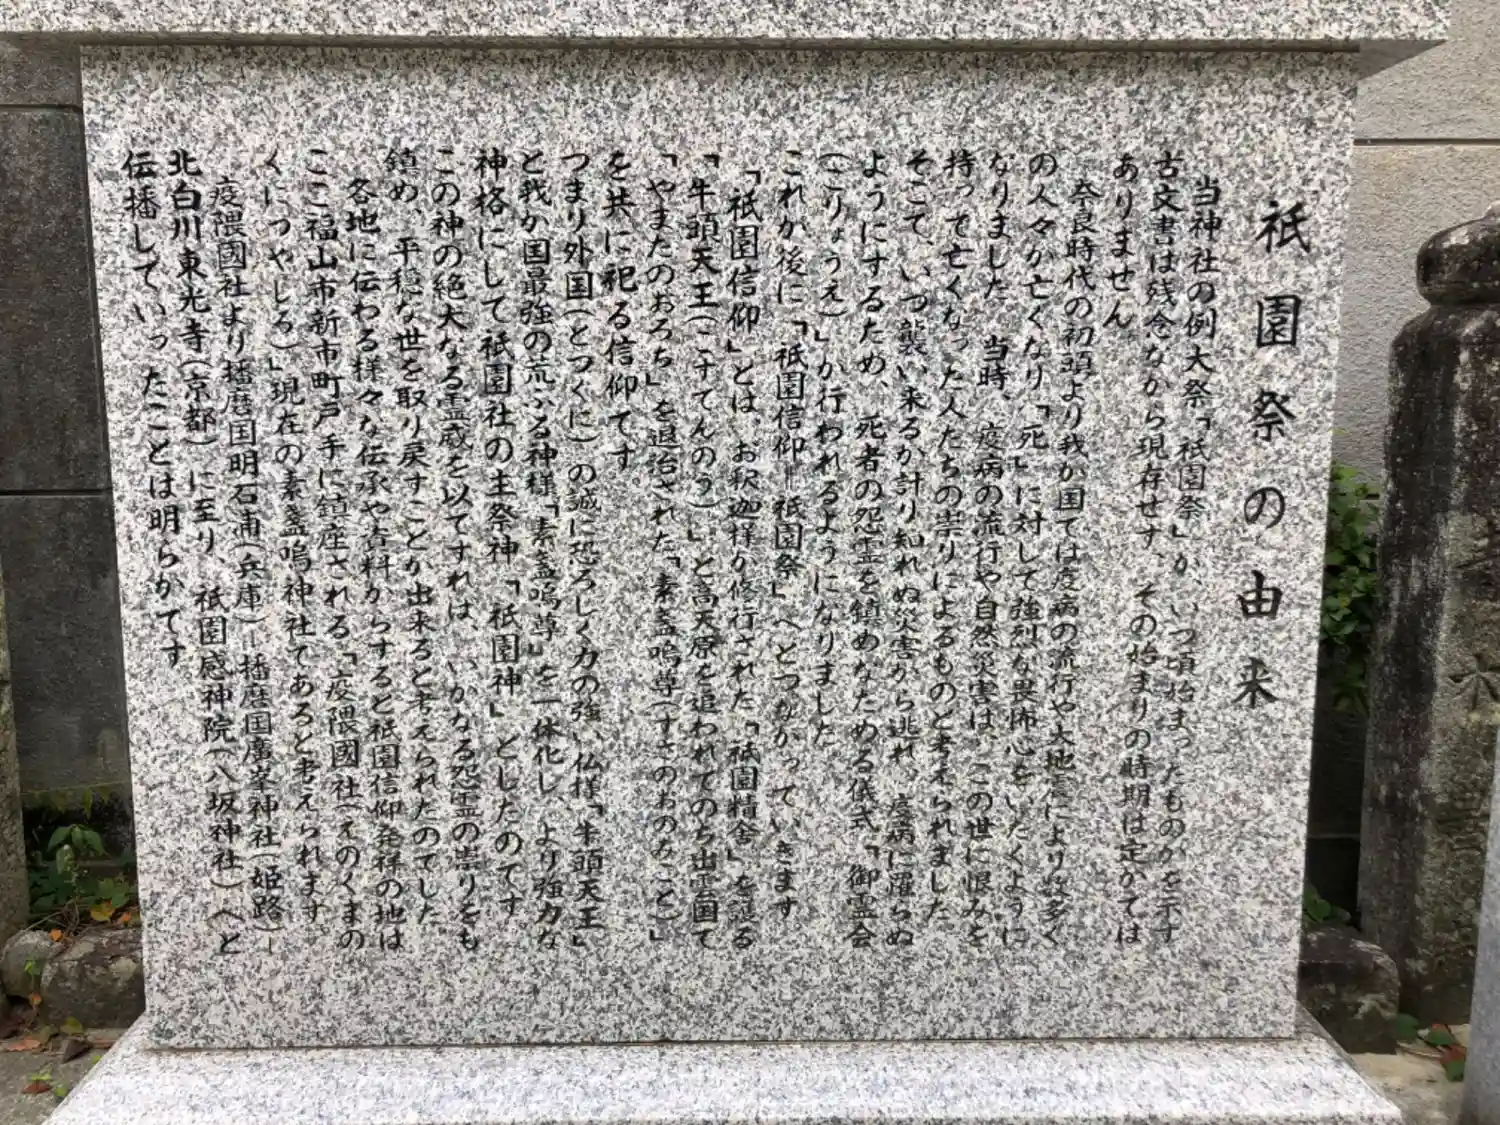 祇園祭の由来
当神社の例大祭「祇園祭」が、いつ頃始まったものかを示す
古文書は残念ながら現存せず、その始まりの時期は定かでは
ありません。
奈良時代の初頭より我が国では疫病の流行や大地震により数多く
の人々が亡くなり「死」に対して強烈な畏怖心をいだくように
なりました。当時、疫病の流行や自然災害は、この世に恨みを
持って亡くなった人たちの祟りによるものと考えられました。
そこで、いつ襲い来るか計り知れぬ災害から逃れ、疫病に罹らぬ
ようにするため、死者の怨霊を鎮めなだめる儀式「御霊会
(ごりょうえ)」が行われるようになりました。
これが後に「祇園信仰=祇園祭」へとつながっていきます。
「祇園信仰」とは、お釈迦様が修行された「祇園精舎」を護る
「牛頭天王(ごずてんのう)」と高天原を追われてのち出雲国で
「やまたのおろち」を退治された「素盞嗚尊(すさのおのみこと)」
を共に祀る信仰です。
つまり外国(とつくに)の誠に恐ろしく力の強い仏様「牛頭天王」
と我が国最強の荒ぶる神様「素盞嗚尊」を一体化し、より強力な
神格にして祇園社の主祭神「祇園神」としたのです。
この神の絶大なる霊威を以てすれば、いかなる怨霊の祟りをも
鎮め、平穏な世を取り戻すことが出来ると考えられたのでした。
各地に伝わる様々な伝承や資料からすると祇園信仰発祥の地は
ここ福山市新市町戸手に鎮座される「疫隈國社(えのくまの
くにつやしろ)」現在の素盞嗚神社であると考えられます。
疫隈國社より播磨国明石浦(兵庫)―播磨国廣峯神社(姫路)―
北白川東光寺(京都)に至り、祇園感神院(八坂神社)へと
伝播していったことは明らかです。